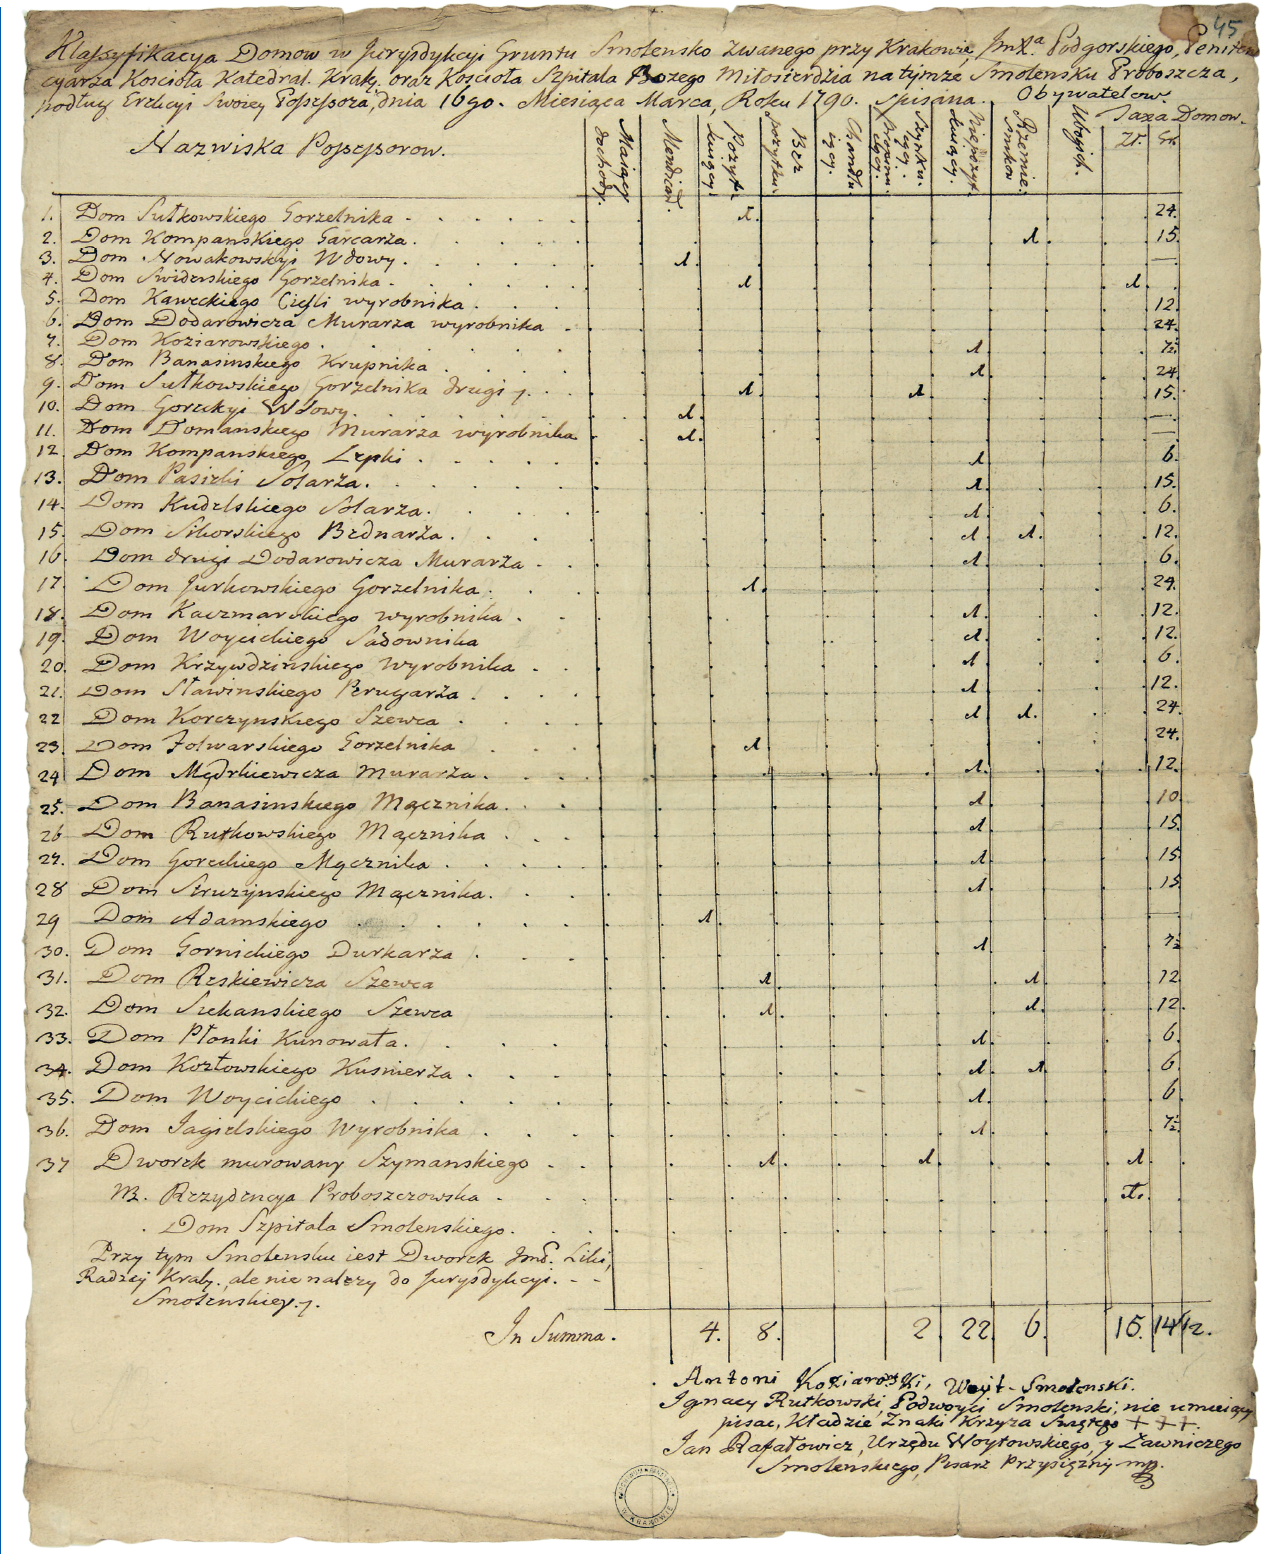 45
Klassyfikacya Domow w Jurysdykcyi Gruntu Smolensko zwanego przy Krakowie, Jmx.a Podgorskiego, Peniten
cyarza Koscioła Katedral. Krak. oraz Koscioła Szpitala Bozego Miłosierdzia na tymze Smolensku Proboszcza,
podług Erekcyi Swoiey Possessora, dnia 16go. Miesiąca Marca, Roku 1790. spisana. Obywatelow.
Nazwiska Possessorow. Maiący dochody. Mendicat. Pozyt- kuiący. Bez pozytku. Handlu- iący. Szynku- iący. Niepozyt- kuiący. Rzemie- snikow Ubogich. Taxa Domow. Zł. Gr.
1. Dom Sutkowskiego Gorzelnika 1. 24.
2. Dom Kompanskiego Garcarza. 1. 15.
3. Dom Nowakowskyi Wdowy. 1. —
4. Dom Swiderskiego Gorzelnika. 1. 1.
5. Dom Kaweckiego Cieśli wyrobnika. 12.
6. Dom Dodarowicza Murarza wyrobnika 24.
7. Dom Koziarowskiego. 1. 7½
8. Dom Banasinskiego Krupnika. 1. 24.
9. Dom Sutkowskiego Gorzelnika drugi 1. 1. 15.
10. Dom Goreckyi Wdowy. 1. —
11. Dom Domanskiego Murarza wyrobnika. 1. —
12. Dom Kompanskiego Lepki. 1. 6.
13. Dom Pasieki Stolarza. 1. 15.
14. Dom Kudelskiego Stolarza. 1. 6.
15. Dom Sikorskiego Bednarza. 1. 1. 12.
16. Dom drugi Dodarowicza Murarza 1. 6.
17. Dom Jurkowskiego Gorzelnika. 1. 24.
18. Dom Kaczmarskiego wyrobnika. 1. 12.
19. Dom Woycickiego Sadownika 1. 12.
20. Dom Krzywdzińskiego wyrobnika 1. 6.
21. Dom Sławinskiego Perugarza. 1. 12.
22 Dom Korczynskiego Szewca. 1 1. 24.
23. Dom Folwarskiego Gorzelnika 1 24.
24 Dom Mędrkiewicza Murarza. 1. 12.
25. Dom Banasinskiego Mącznika. 1 10
26 Dom Rutkowskiego Mącznika 1. 15.
27. Dom Goreckiego Mącznika. 1. 15
28 Dom Struzynskiego Mącznika. 1. 15
29 Dom Adamskiego 1. —
30. Dom Gornickiego Durkarza. 1. 7½
31. Dom Reskiewicza Szewca 1. 1. 12
32. Dom Suchanskiego Szewca 1. 1. 12.
33. Dom Płonki Kunowała. 1. 6.
34. Dom Kozłowskiego Kusnierza. 1. 1. 6
35. Dom Woycickiego. 1. 6
36. Dom Jagielskiego Wyrobnika. 1. 7½
37 Dworek murowany Szymanskiego. 1. 1. 1.
NB. Rezydencya Proboszczowska.
Dom Szpitala Smolenskiego.
Przy tym Smolensku iest Dworek Jmć. Liki,
Radzcy Krak. ale nie nalezy do Jurysdykcyi.
Smolenskiey.
In Summa. 4. 8. 2 22. 6. 15. 14 ½.
Antoni Koziarowski, Woyt Smolenski.
Ignacy Rutkowski, Podwoyci Smolenski, nie umieiący
pisac, Kładzie Znaki Krzyza Swiętego + + +.
Jan Rafałowicz, Urzędu Woytowskiego, y Ławniczego
Smolenskiego, Pisarz Przysięzny mp.
W KRAKOWIE